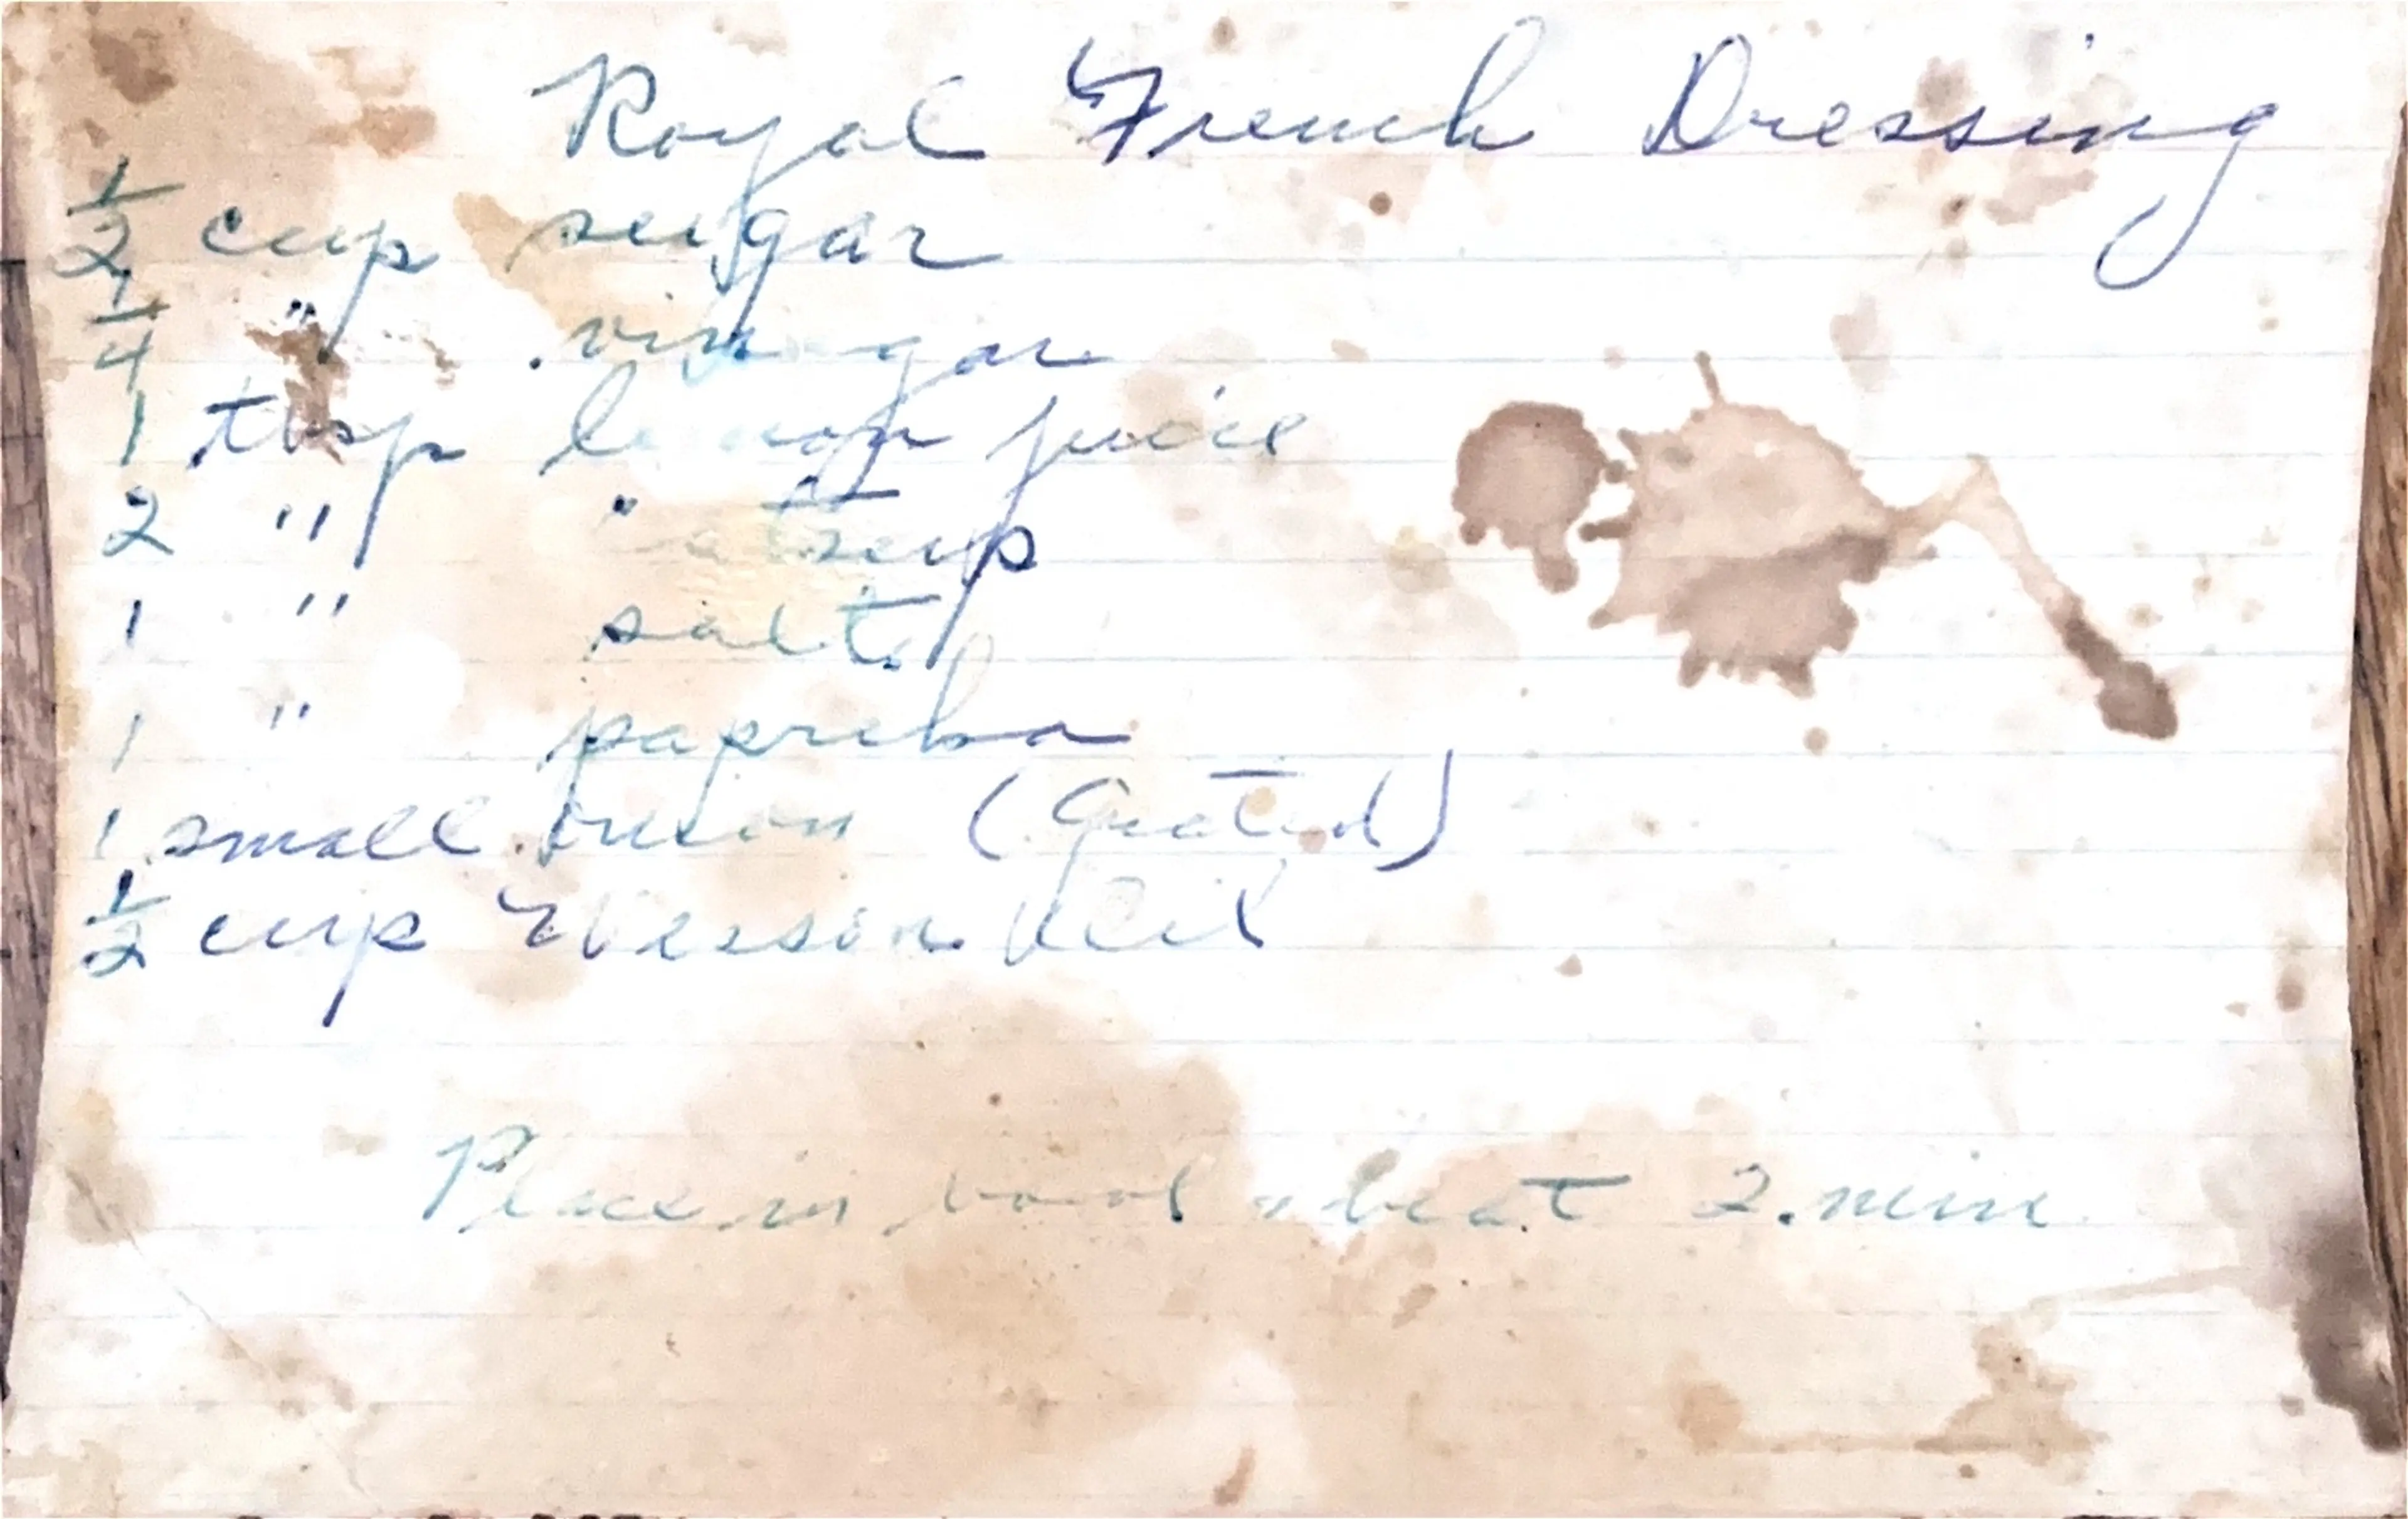 Royal French Dressing
1/2 cup sugar
1/4 " vinegar
1 tbsp lemon juice
2 " catsup
1 " salt
1 " paprika
1 small onion (Grated)
1/2 cup Wesson Oil
Place in bowl & beat 2 min